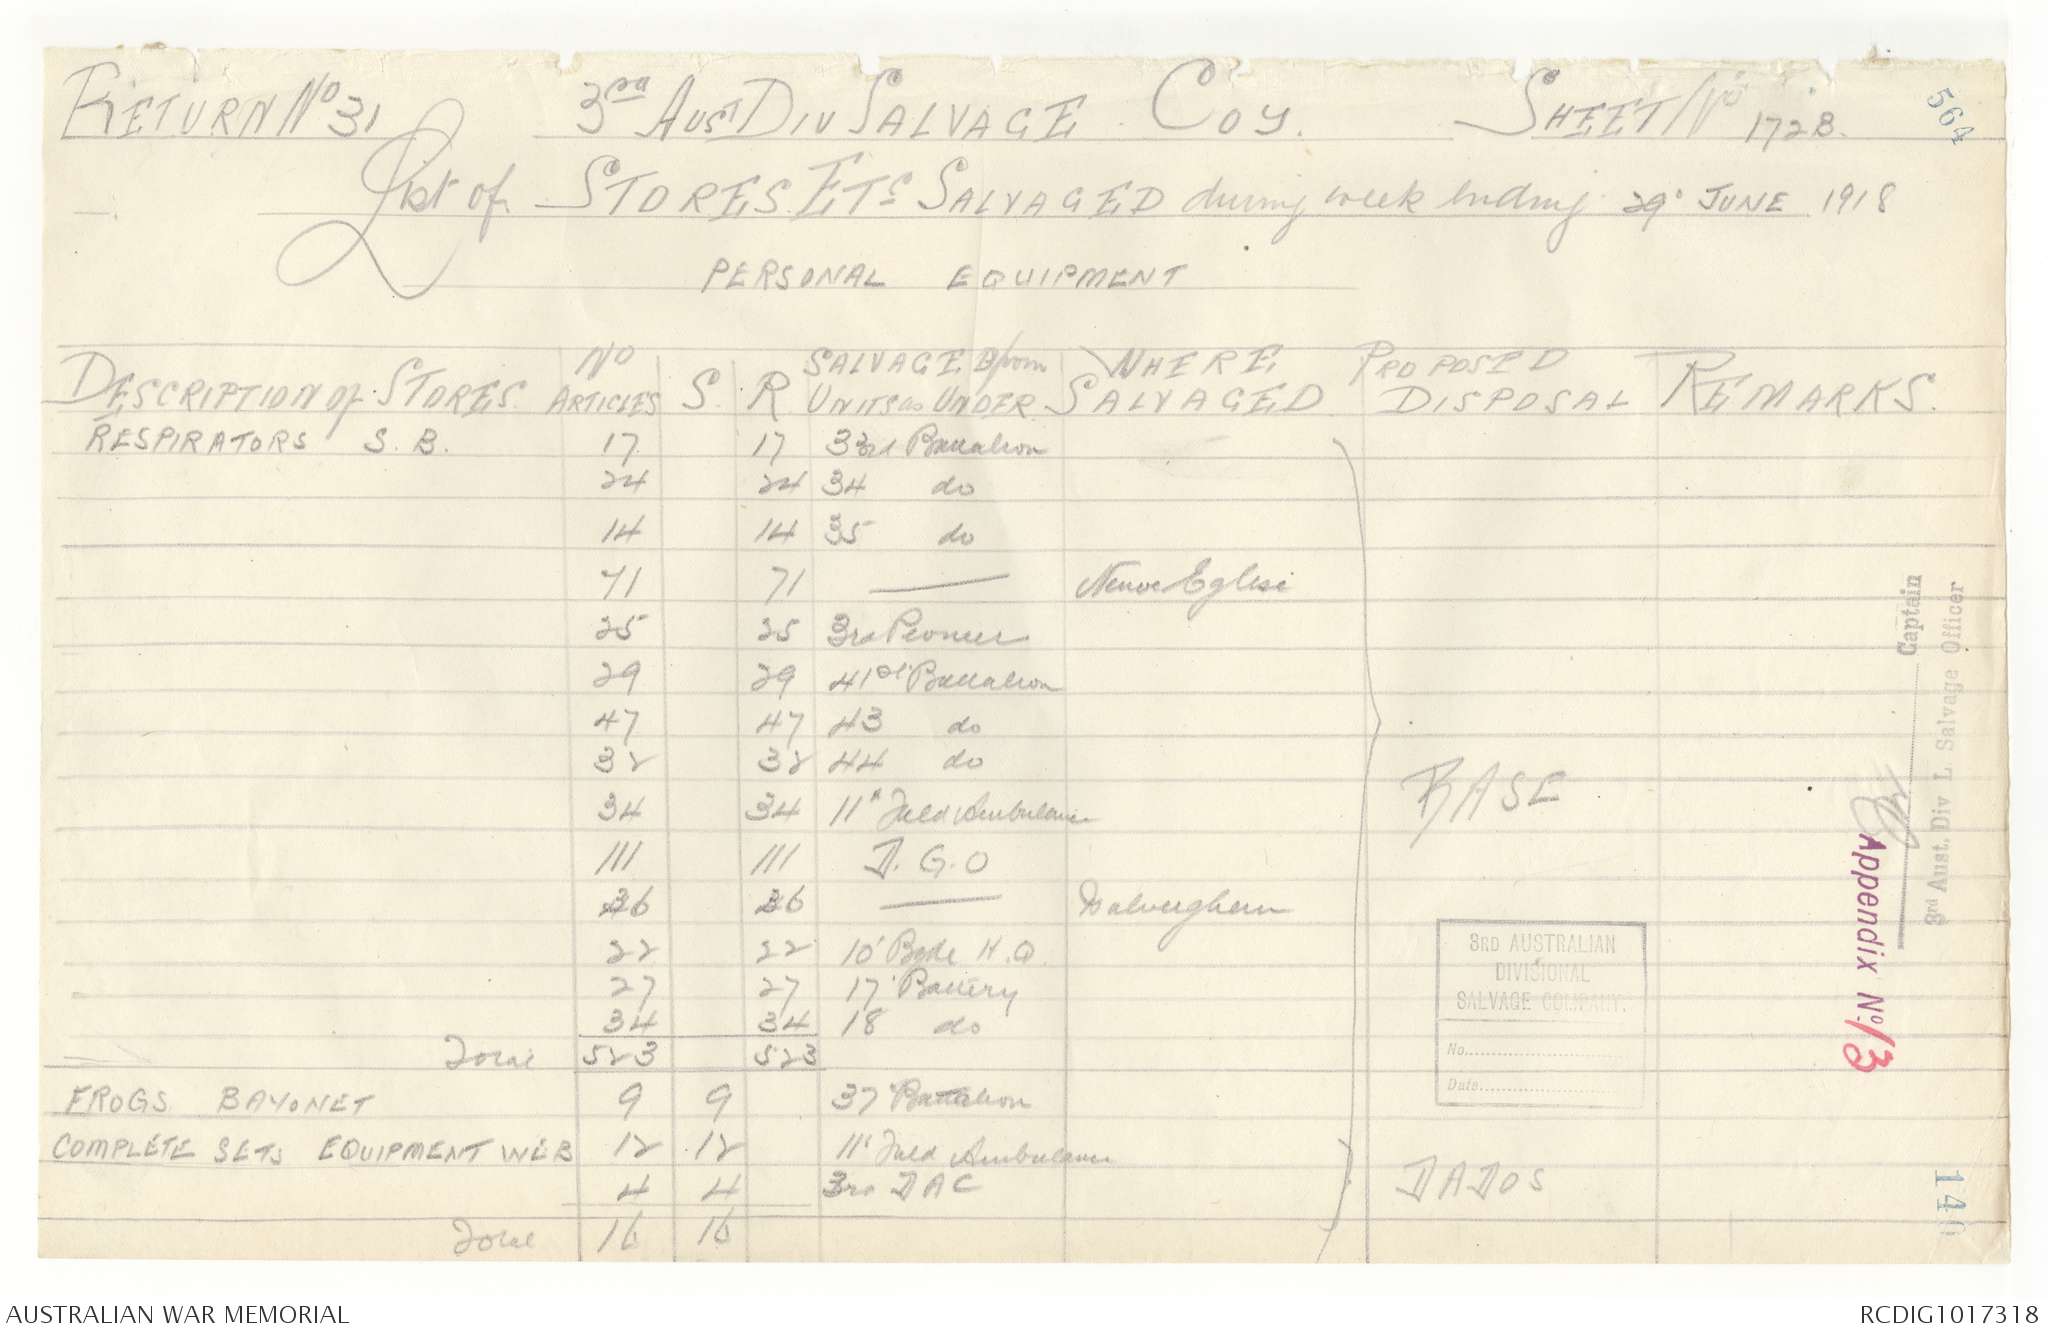 RETURN No 31 3rd AUST DIV SALVAGE COY. SHEET No 172B.
564
List of STORES ETc SALVAGED during week ending 29 JUNE 1918
PERSONAL EQUIPMENT
DESCRIPTION of STORES No ARTICLES S. R. SALVAGED from UNITS as UNDER WHERE SALVAGED PROPOSED DISPOSAL REMARKS.
RESPIRATORS S.B. 17 17 33rd Battalion
24 24 34 do
14 14 35 do
71 71 — Neuve Eglise
25 25 3rd Pioneer
29 29 41st Battalion
47 47 43 do
32 32 44 do
BASE
34 34 11" Field Ambulance
111 111 D.G.O
36 36 —
22 22 10' Bgde H.Q.
27 27 17' Battery
34 34 18 do
Total 523 523
FROGS BAYONET 9 9 37' Battalion
COMPLETE SETS EQUIPMENT WEB 12 12 11' Field Ambulance
4 4 3rd DAC DADOS
Total 16 16
3RD AUSTRALIAN
DIVISIONAL
SALVAGE COMPANY.
No.
Date
Captain
3rd Aust. Div L Salvage Officer
Appendix No. 13
140
AUSTRALIAN WAR MEMORIAL RCDIG1017318